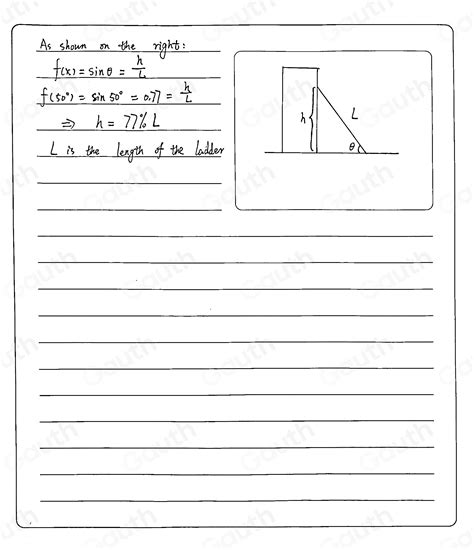 As shown on the right:
f(x) = sin θ = h/L
f(50°) = sin 50° = 0.77 = h/L
⇒ h = 77% L
L is the length of the ladder
h
L
θ
Gauth